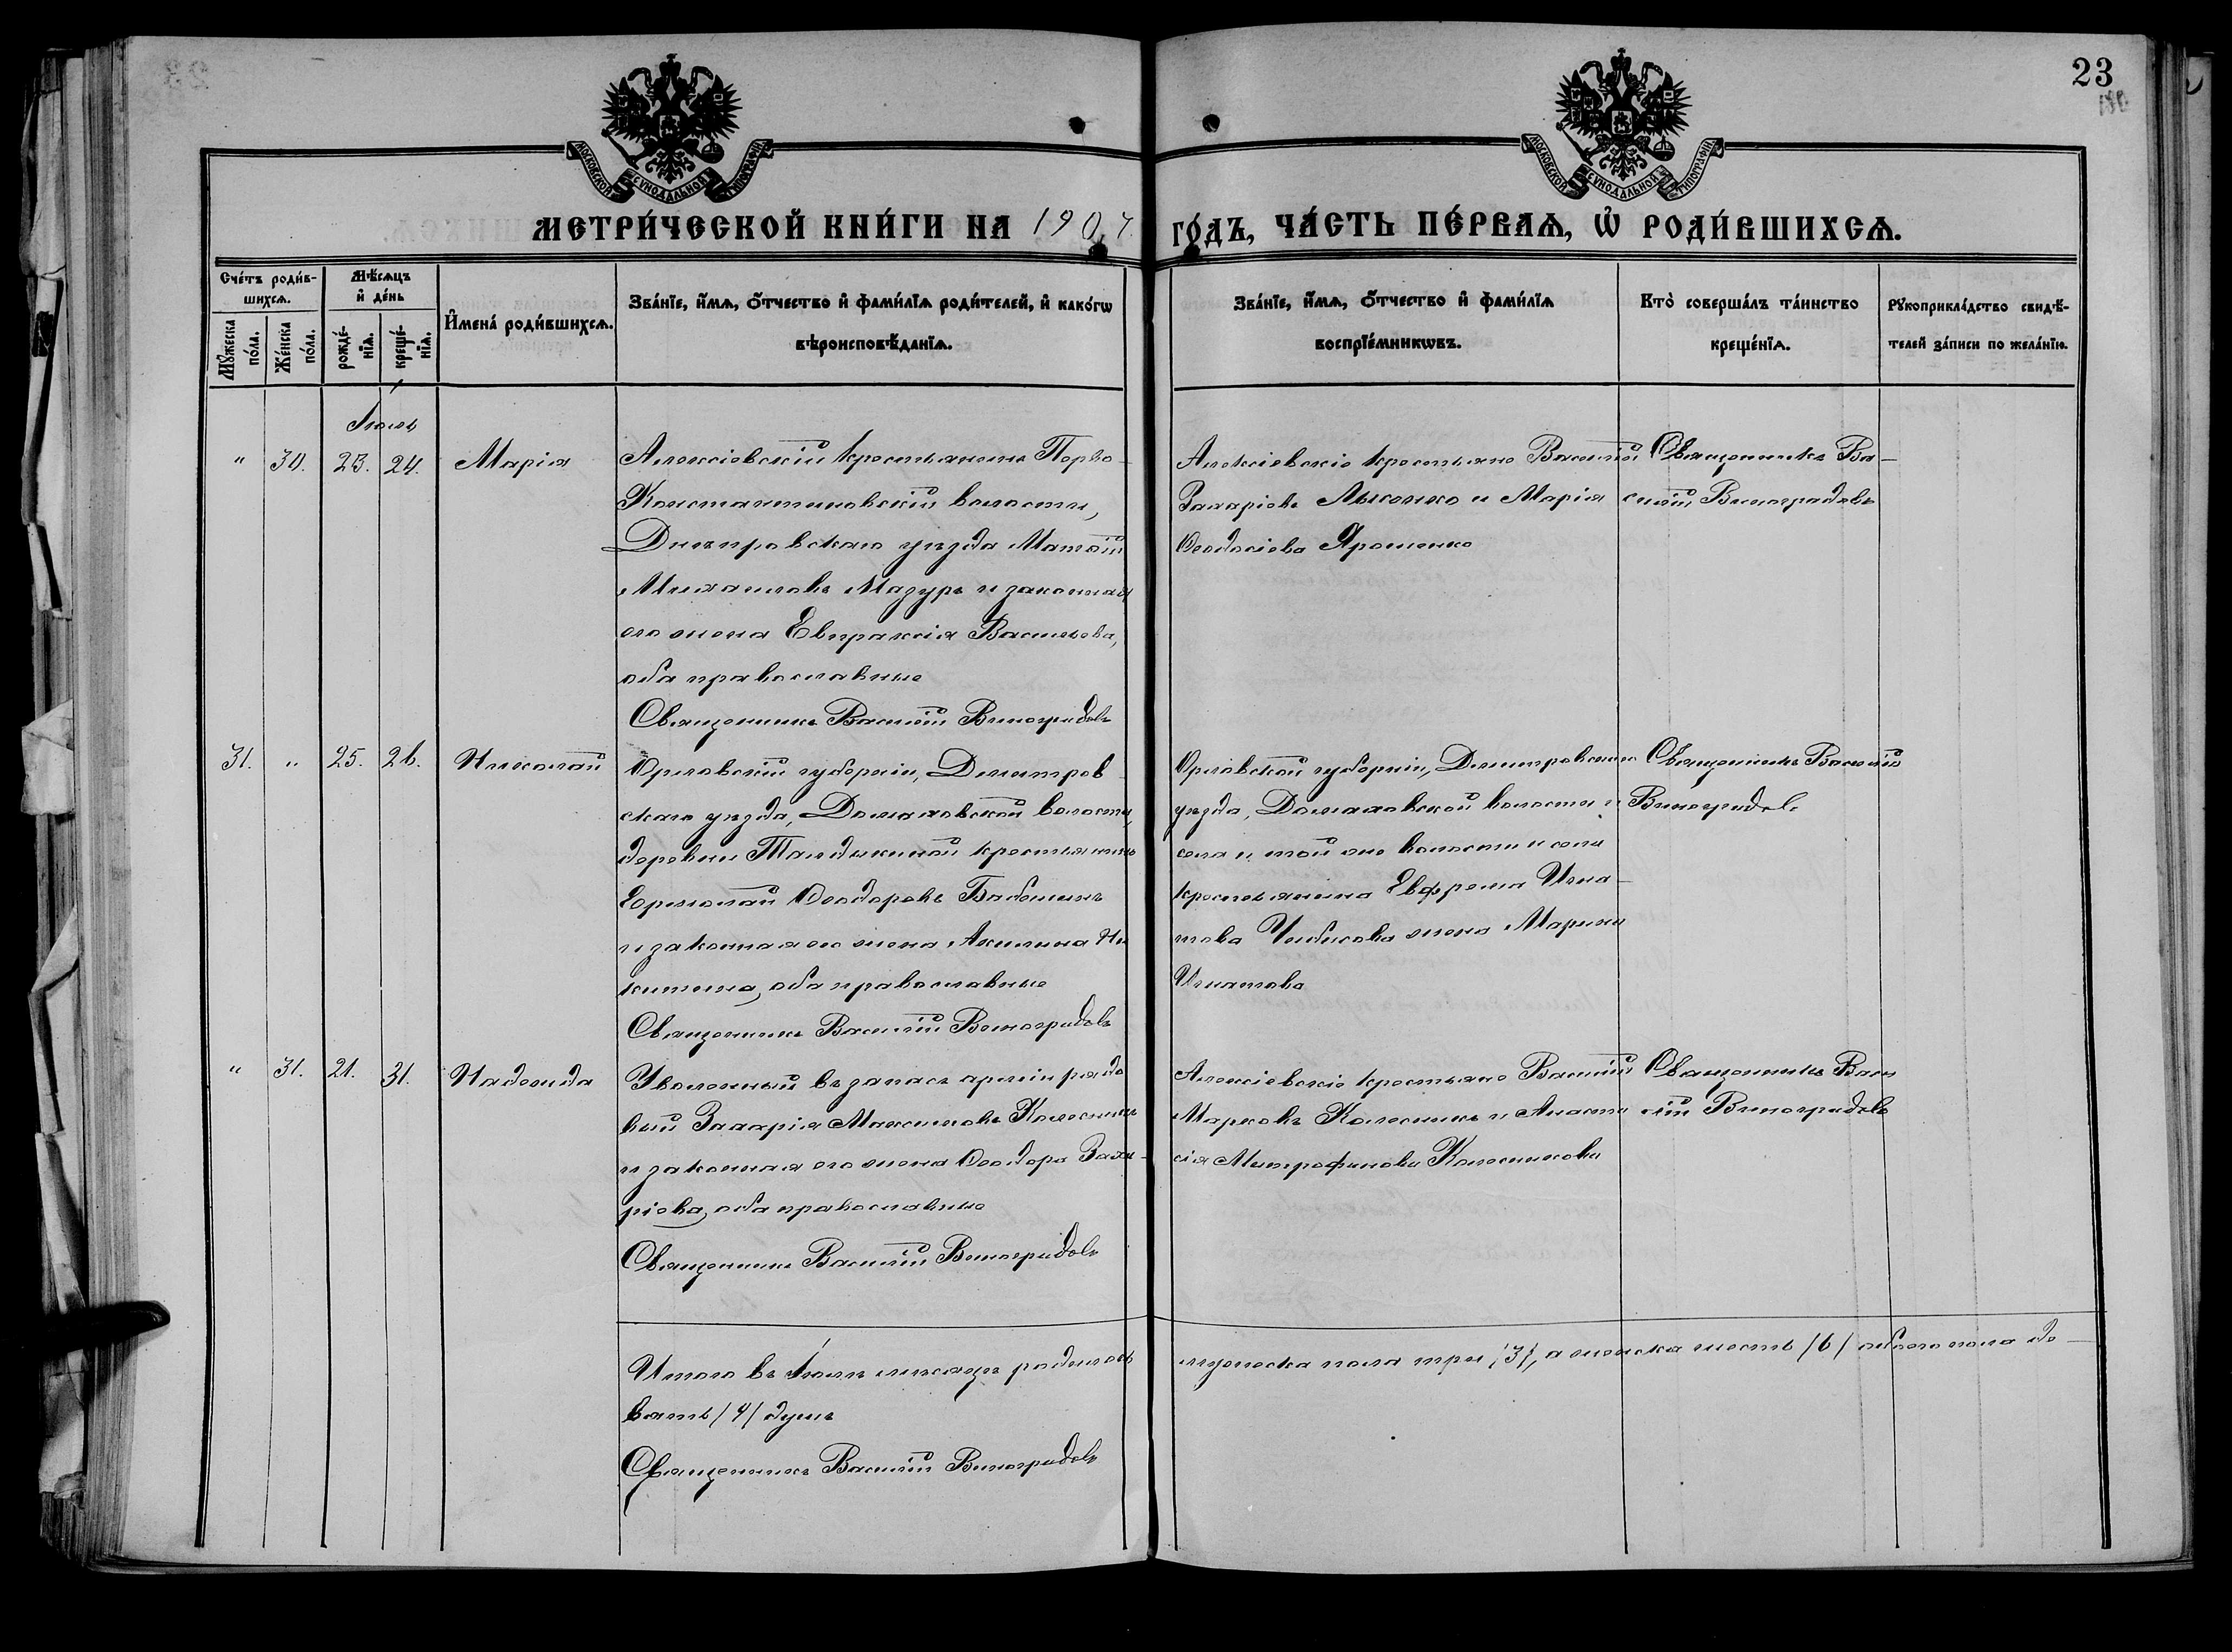 23
МОСКОВСКОЙ СѴНОДАЛЬНОЙ ТИПОГРАФІИ
МОСКОВСКОЙ СѴНОДАЛЬНОЙ ТИПОГРАФІИ
МЕТРИ́ЧЕСКОЙ КНИ́ГИ НА 1907
ГО́ДЪ, ЧА́СТЬ ПЕ́РВАѦ, Ѡ҆ РОДИ́ВШИХСѦ.
Сче́тъ роди́в-
шихсѧ.
Мꙋ́жеска
по́ла.
Же́нска
по́ла.
Мѣ́сѧцъ
и҆ де́нь
рожде́-
нїѧ.
креще́-
нїѧ.
И҆мена̀ роди́вшихсѧ.
Зва́нїе, и҆́мѧ, ѻ҆́тчество и҆ фами́лїѧ роди́телей, и҆ како́гѡ
вѣроисповѣ́данїѧ.
Зва́нїе, и҆́мѧ, ѻ҆́тчество и҆ фами́лїѧ
воспрїе́мникѡвъ.
Кто̀ соверша́лъ та́инство
креще́нїѧ.
Рꙋкоприкла́дство свидѣ́-
телей за́писи по жела́нїю.
Іюль
" 30. 23. 24. Марія
Алексіевскій крестьянинъ Перво-
Константиновскій волости,
Днепровскаго уезда Матѳій
Михаиловъ Мазуръ и законная
его жена Евпраксія Васильева,
оба православные
Священникъ Василій Виноградовъ
Алексіевскіе крестьяне Василій
Захаріевъ Лысенко и Марія
Ѳеодосіева Ярошенко
Священникъ Ва-
силій Виноградовъ
31. " 25. 26. Николай
Орловскій губерніи, Дмитров
скаго уезда, Домаховской волости,
деревни Талдыкиной крестьянинъ
Ермолай Ѳеодоровъ Бабошинъ
и законная его жена Акилина Ни
китина, оба православные
Священникъ Василій Виноградовъ
Орловской губерніи, Дмитровскаго
уезда, Домаховской волости и
села и той же волости и села
крестьянина Евфрема Игна-
това Чибисова жена Марина
Игнатова
Священникъ Василій
Виноградовъ
" 31. 21. 31. Надежда
Уволенный въ запасъ арміи рядо
вый Захарія Максимовъ Колесникъ
и законная его жена Ѳеодора Заха-
ріева, оба православные
Священникъ Василій Виноградовъ
Алексіевскіе крестьяне Василій
Марковъ Колесникъ и Анаста
сія Митрофанова Колесникова
Священникъ Васи
лій Виноградовъ
Итого въ Іюле месяце родилось
мужеска пола три /3/, а женска шесть /6/ обоего пола де-
вять /9/ душъ
Священникъ Василій Виноградовъ